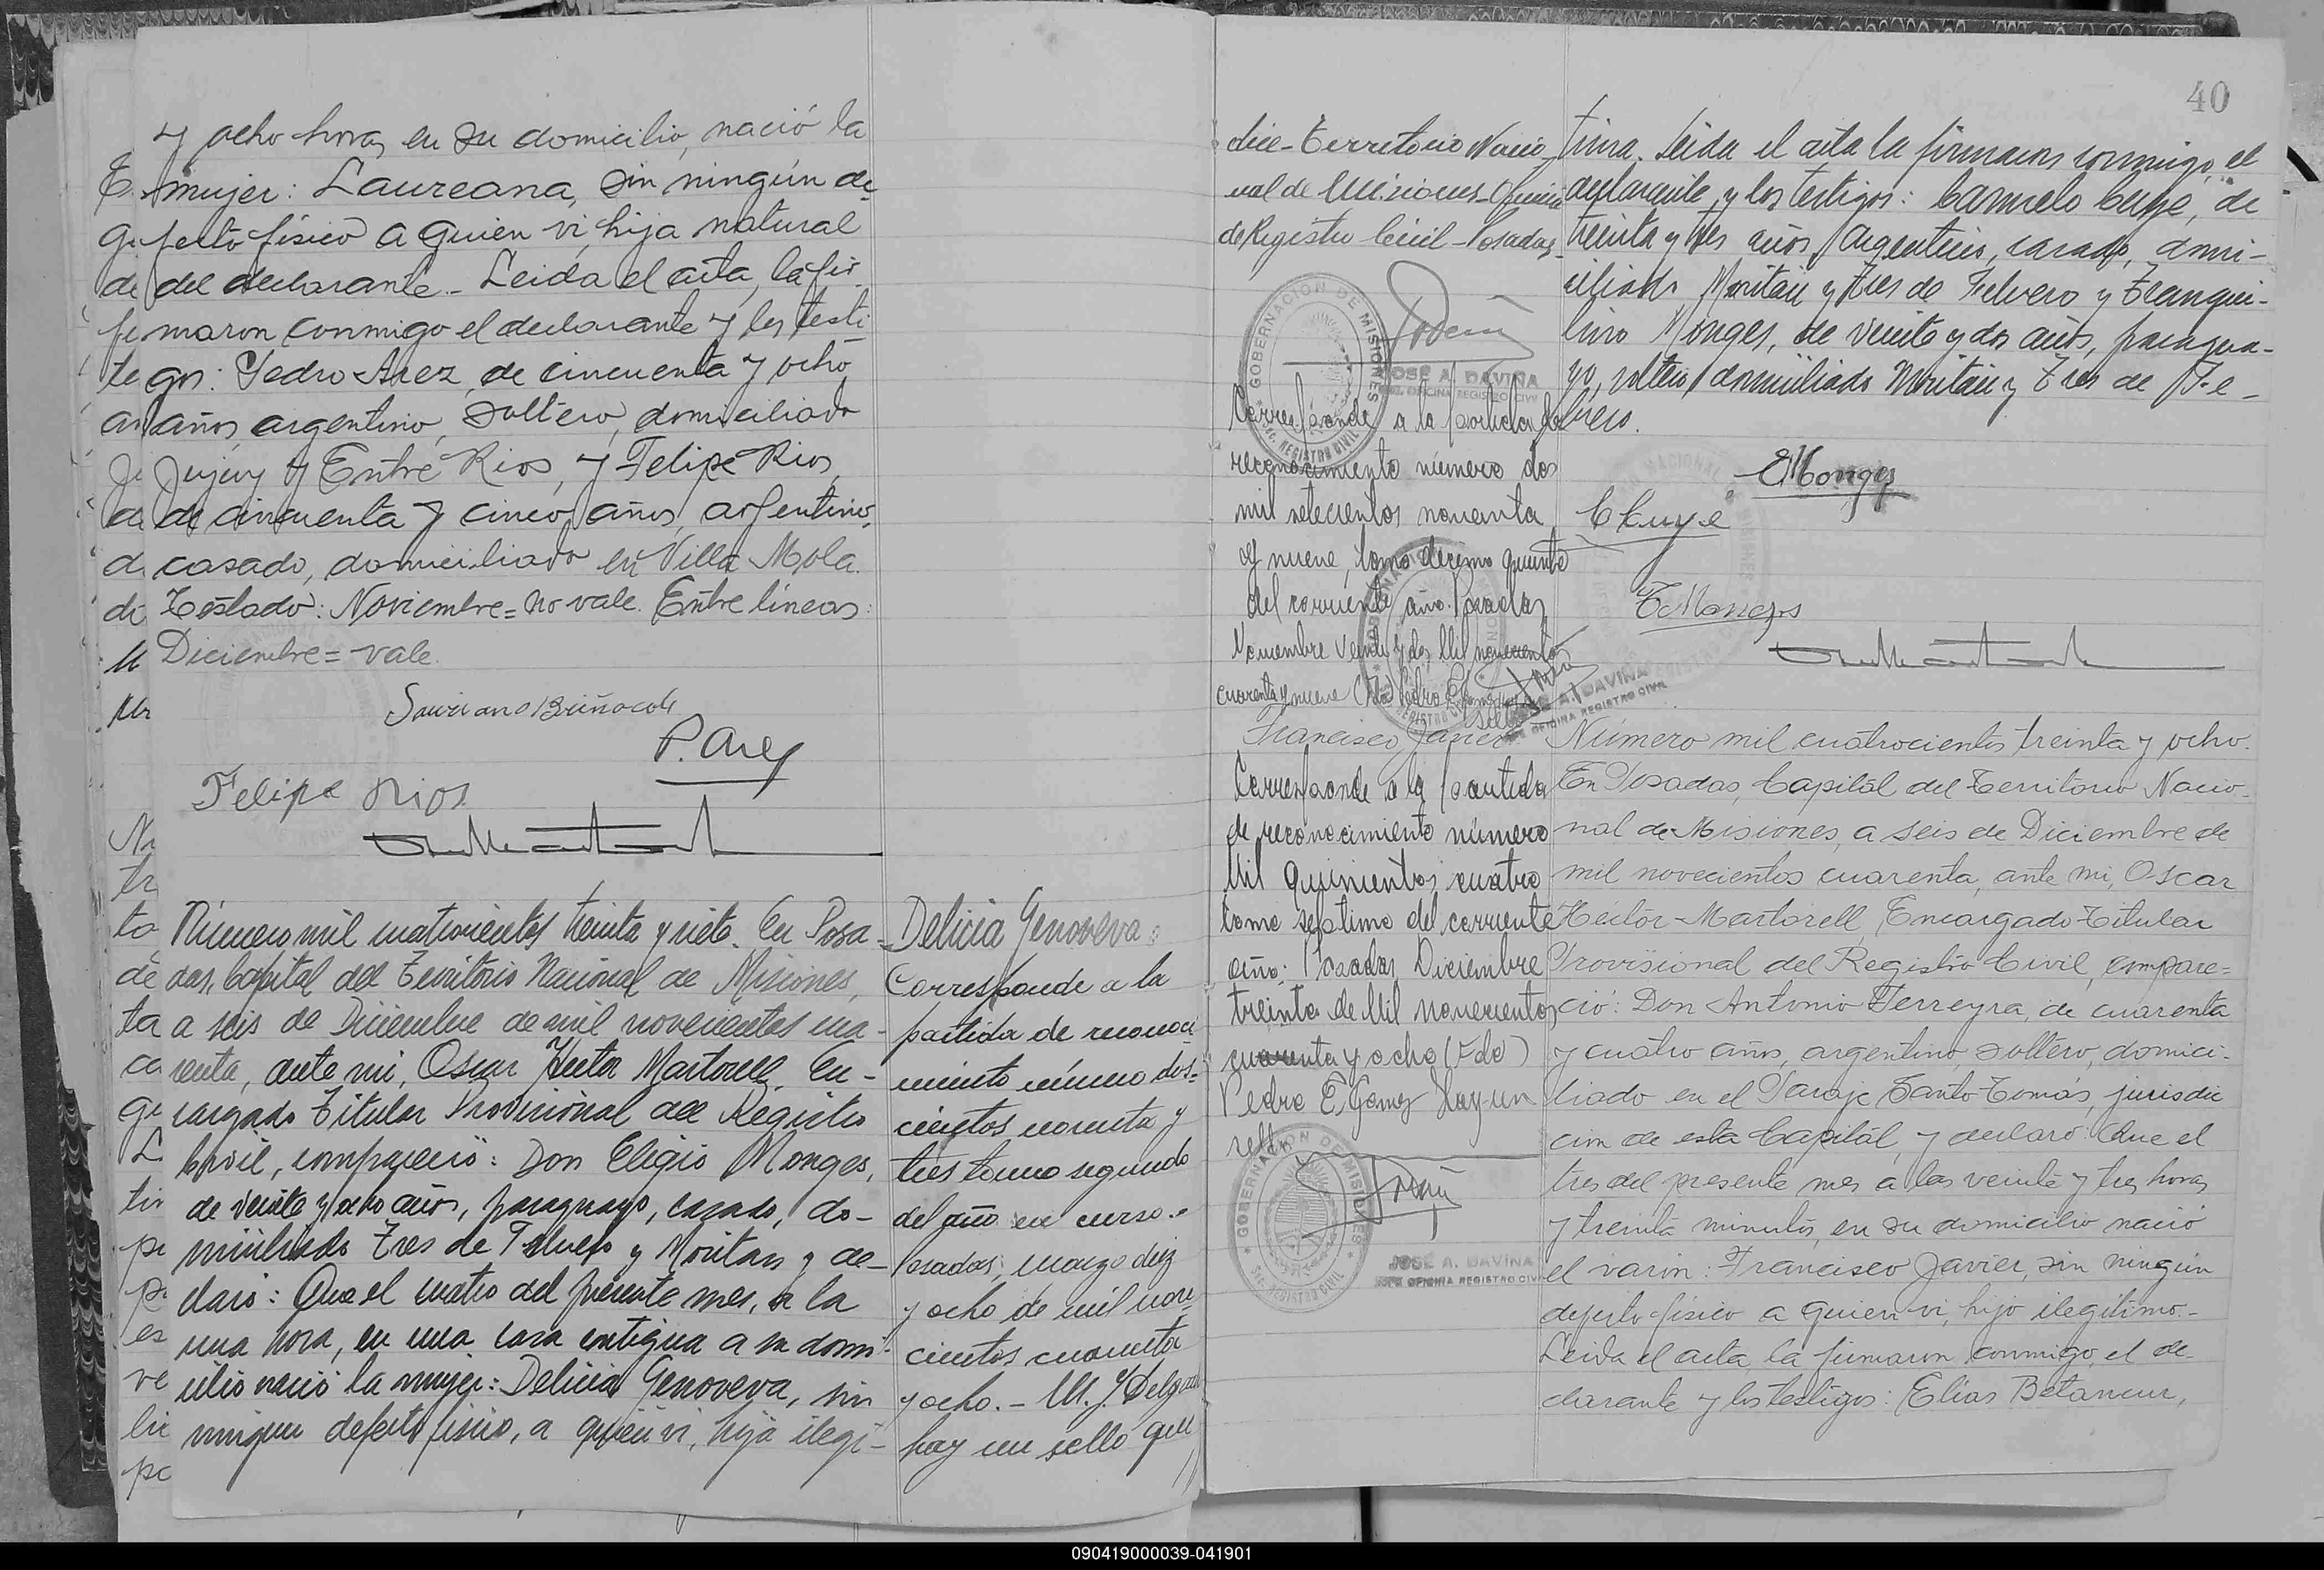 y ocho horas, en su domicilio, nació la
mujer: Laureana, sin ningún de-
fecto físico a quien vi, hija natural
del declarante.- Leida el acta, la fir-
maron conmigo el declarante y los testi
gos: Pedro Arez, de cincuenta y ocho
años, argentino, soltero, domiciliado
Jujuy y Entre Rios, y Felipe Rios,
de cincuenta y cinco años, argentino,
casado, domiciliado en Villa Mola.
Testado: Noviembre = no vale. Entre líneas:
Diciembre = vale.
P. Arez
Felipe Rios
Número mil cuatrocientos treinta y siete. En Posa-
das, Capital del Territorio Nacional de Misiones,
a seis de Diciembre de mil novecientos cua-
renta, ante mi, Oscar Hector Martorell, En-
cargado Titular Provisional del Registro
Civil, compareció: Don Eligio Monges,
de veinte y ocho años, paraguayo, casado, do-
miciliado Tres de Febrero y Moritan y de-
claró: Que el cuatro del presente mes, a la
una hora, en una casa contigua a su domi-
cilio nació la mujer: Delicia Genoveva, sin
ningun defecto fisico, a quien vi, hija ilegi-
Delicia Genoveva
Corresponde a la
partida de reconoci
miento número dos-
cientos noventa y
tres tomo segundo
del año en curso.-
Posadas, marzo diez
y ocho de mil nove-
cientos cuarenta
y ocho.- M. J. Delgado
hay un sello que
40
dice- Territorio Nacio-
nal de Misiones- Oficina
de Registro Civil- Posadas-
GOBERNACION DE MISIONES
SEC. REGISTRO CIVIL
JOSE A. DAVIÑA
JEFE OFICINA REGISTRO CIVIL
Corresponde a la partida de
reconocimiento número dos
mil setecientos noventa
y nueve, tomo decimo quinto
del corriente año. Posadas,
Noviembre veinte y dos Mil novecientos
cuarenta y nueve (Fdo) Pedro E. Gomez Hay un
sello
JOSE A. DAVIÑA
JEFE OFICINA REGISTRO CIVIL
tima. Leida el acta la firmaron conmigo, el
declarante, y los testigos: Carmelo Cuye, de
treinta y tres años, argentino, casado, domi-
ciliado Moritan y Tres de Febrero y Tranqui-
lino Monges, de veinte y dos años, paragua-
yo, soltero, domiciliado Moritan y Tres de Fe-
brero.
E Monges
C Cuye
T Monges
Francisco Javier
Corresponde a la partida
de reconocimiento número
Mil quinientos cuatro
tomo septimo del corriente
año; Posadas, Diciembre
treinta de Mil novecientos
cuarenta y ocho (Fdo)
Pedro E. Gomez Hay un
sello
GOBERNACION DE MISIONES
SEC. REGISTRO CIVIL
JOSE A. DAVIÑA
JEFE OFICINA REGISTRO CIVIL
Número mil cuatrocientos treinta y ocho.
En Posadas, Capitál del Territorio Nacio-
nal de Misiones, a seis de Diciembre de
mil novecientos cuarenta, ante mi, Oscar
Héctor Martorell, Encargado Titular
Provisional del Registro Civil, compare=
ció: Don Antonio Ferreyra, de cuarenta
y cuatro años, argentino, soltero, domici-
liado en el Paraje Santo Tomás, jurisdic
cion de esta Capitál, y declaró: Que el
tres del presente mes a las veinte y tres horas
y treinta minutos, en su domicilio nació
el varón: Francisco Javier, sin ningún
defecto físico a quien vi, hijo ilegítimo.-
Leida el acta, la firmaron conmigo, el de-
clarante y los testigos: Elías Betancur,
090419000039-041901